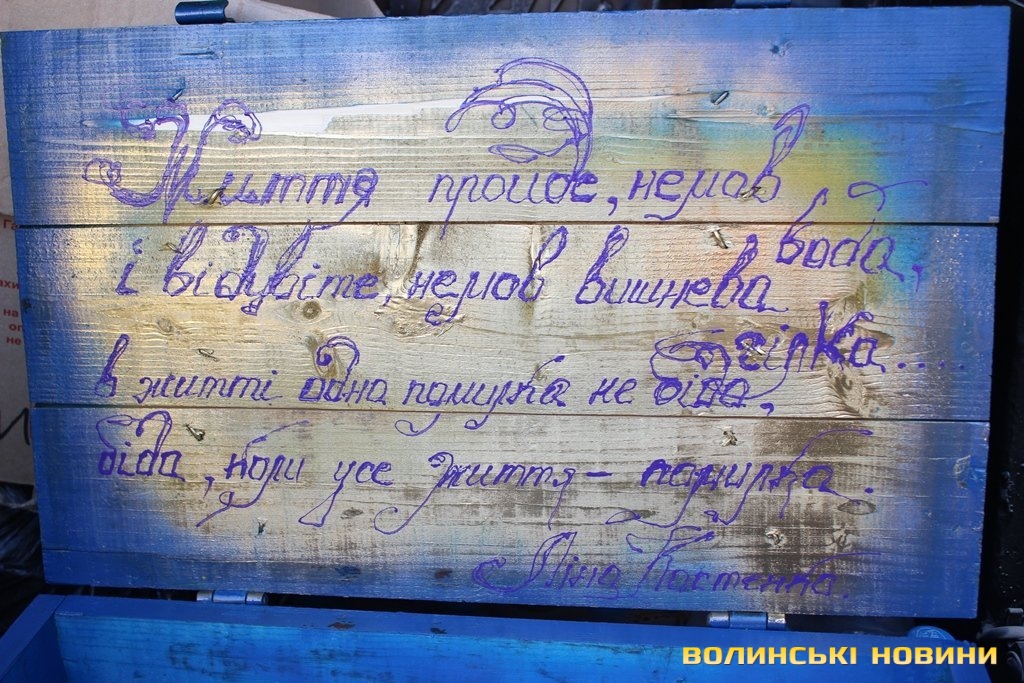 Життя пройде, немов вода,
і відцвіте, немов вишнева гілка.....
в житті одна помилка не біда,
біда, коли усе життя – помилка.
Ліна Костенко.
ВОЛИНСЬКІ НОВИНИ